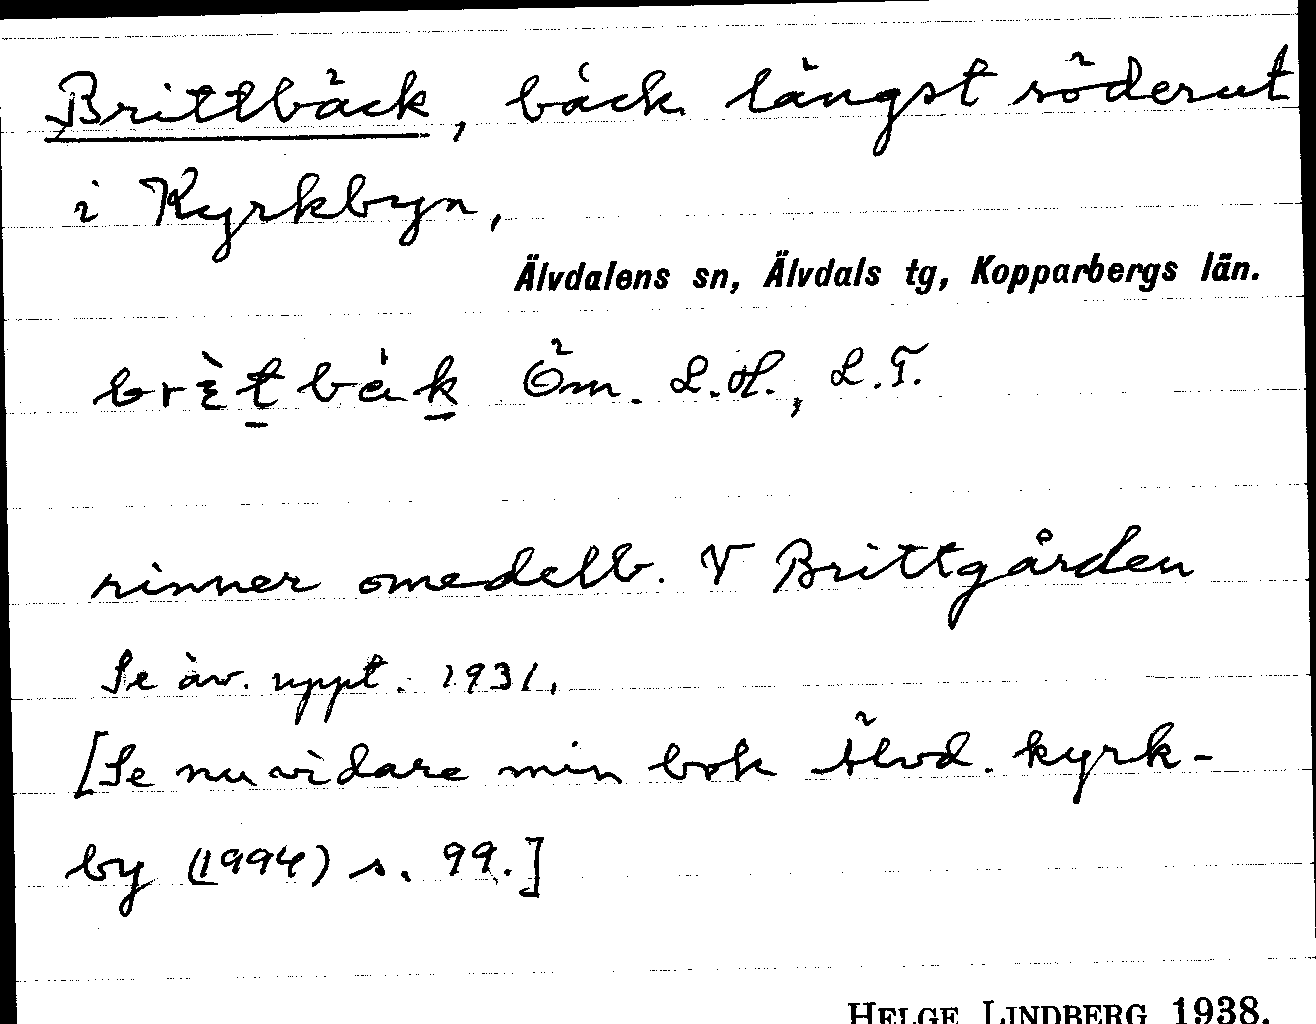 Brittbäck, bäck längst söderut
i Kyrkbyn,
Älvdalens sn, Älvdals tg, Kopparbergs län.
Öm. L.H., L.T.
rinner omedelb. V Brittgården
Se äv. uppt. 1931.
[Se nu vidare min bok Älvd. kyrk-
by (1994) s. 99.]
HELGE LINDBERG 1938.